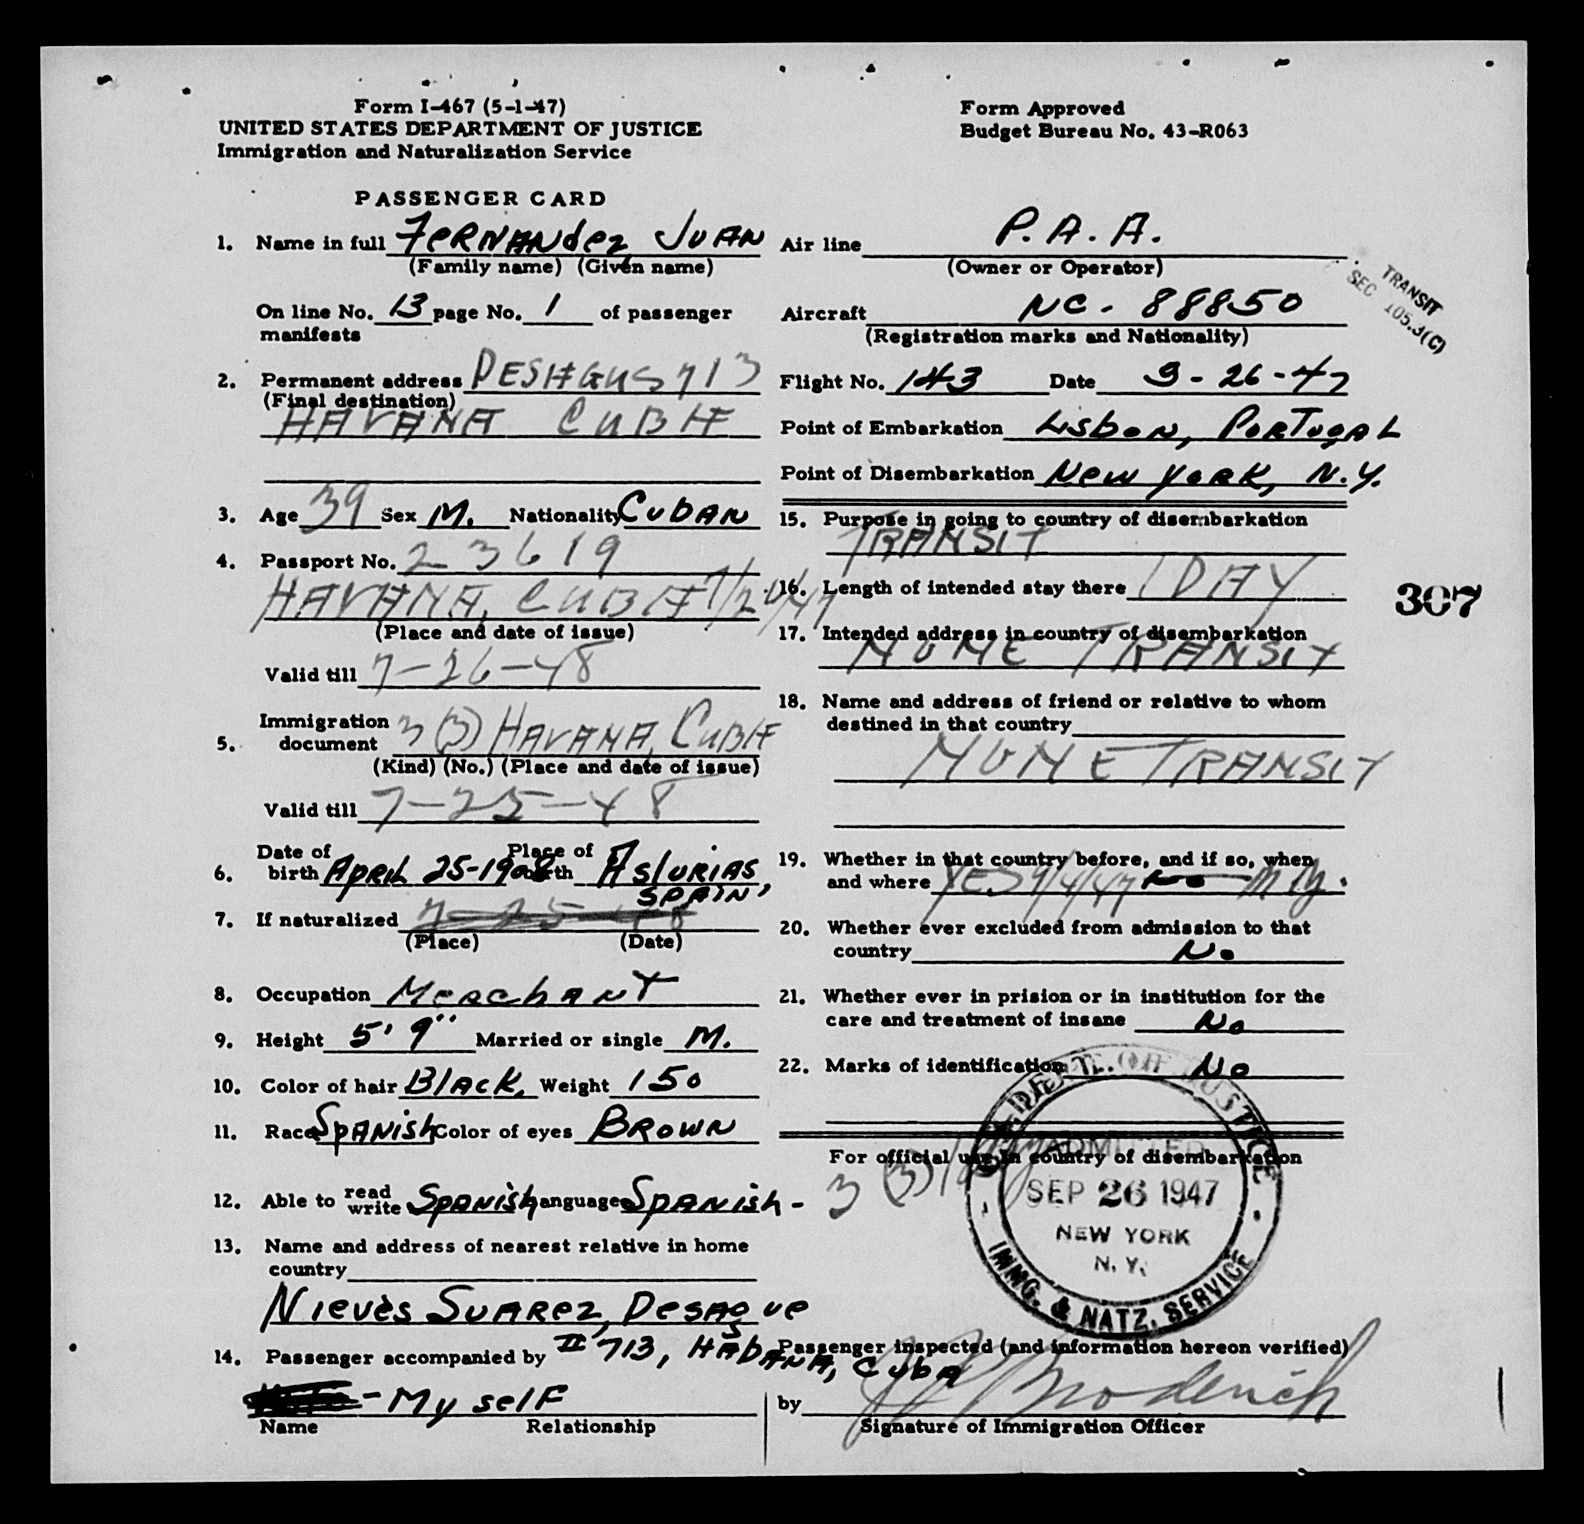 Form I-467 (5-1-47)
UNITED STATES DEPARTMENT OF JUSTICE
Immigration and Naturalization Service
Form Approved
Budget Bureau No. 43-R063
PASSENGER CARD
1. Name in full FERNANdez JUAN
(Family name) (Given name)
On line No. 13 page No. 1 of passenger
manifests
2. Permanent address DESAGUS 713
(Final destination)
HAVANA CUBA
3. Age 39 Sex M. Nationality CUBAN
4. Passport No. 23619
HAVANA, CUBA 7/26/47
(Place and date of issue)
Valid till 7-26-48
5. Immigration
document 3 (3) HAVANA, CUBA
(Kind) (No.) (Place and date of issue)
Valid till 7-25-48
6. Date of birth April 25-1908 Place of birth Asturias
SPAIN,
7. If naturalized 7-25-48
(Place) (Date)
8. Occupation MerchANT
9. Height 5' 9" Married or single M.
10. Color of hair BlAcK. Weight 150
11. Race SpANish Color of eyes BROWN
12. Able to read write SpANish language SpANish-
13. Name and address of nearest relative in home
country
Nieves SUARez, DesAgue
II 713, HABANA, CUBA
14. Passenger accompanied by
- My self
Name Relationship
Air line P.A.A.
(Owner or Operator)
TRANSIT
SEC 105.3(C)
Aircraft NC-88850
(Registration marks and Nationality)
Flight No. 143 Date 9-26-47
Point of Embarkation Lisbon, PORTUGAL
Point of Disembarkation New York, N.Y.
15. Purpose in going to country of disembarkation
TRANSIT
16. Length of intended stay there 1 DAY
307
17. Intended address in country of disembarkation
NONE TRANSIT
18. Name and address of friend or relative to whom
destined in that country
NONE TRANSIT
19. Whether in that country before, and if so, when
and where YES 9/4/47 No N.Y.
20. Whether ever excluded from admission to that
country No
21. Whether ever in prision or in institution for the
care and treatment of insane No
22. Marks of identification No
For official use in country of disembarkation
3 (3)
U.S. DEPT. OF JUSTICE
ADMITTED
SEP 26 1947
NEW YORK
N. Y.
IMMG. & NATZ. SERVICE
Passenger inspected (and information hereon verified)
by
Signature of Immigration Officer